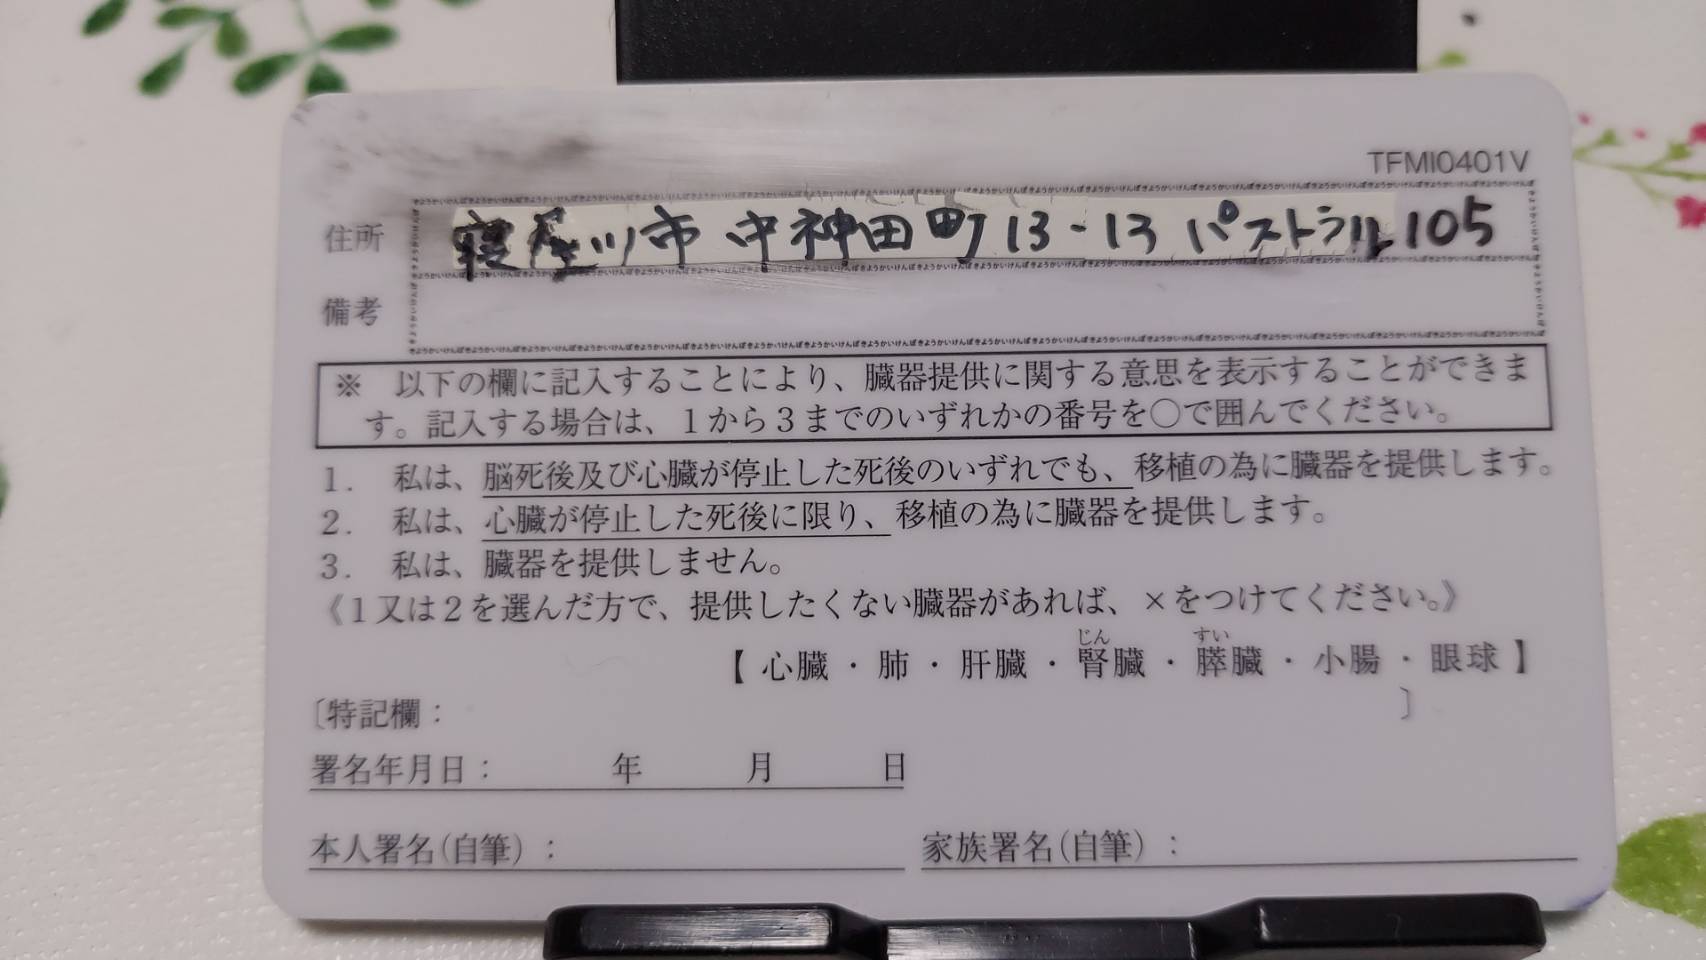 TFMI0401V
住所 寝屋川市 中神田町 13-13 パストラル 105
備考
※ 以下の欄に記入することにより、臓器提供に関する意思を表示することができま
す。記入する場合は、1から3までのいずれかの番号を○で囲んでください。
1. 私は、脳死後及び心臓が停止した死後のいずれでも、移植の為に臓器を提供します。
2. 私は、心臓が停止した死後に限り、移植の為に臓器を提供します。
3. 私は、臓器を提供しません。
《1又は2を選んだ方で、提供したくない臓器があれば、×をつけてください。》
じん すい
【 心臓 ・ 肺 ・ 肝臓 ・ 腎臓 ・ 膵臓 ・ 小腸 ・ 眼球 】
〔特記欄: 〕
署名年月日: 年 月 日
本人署名(自筆): 家族署名(自筆):